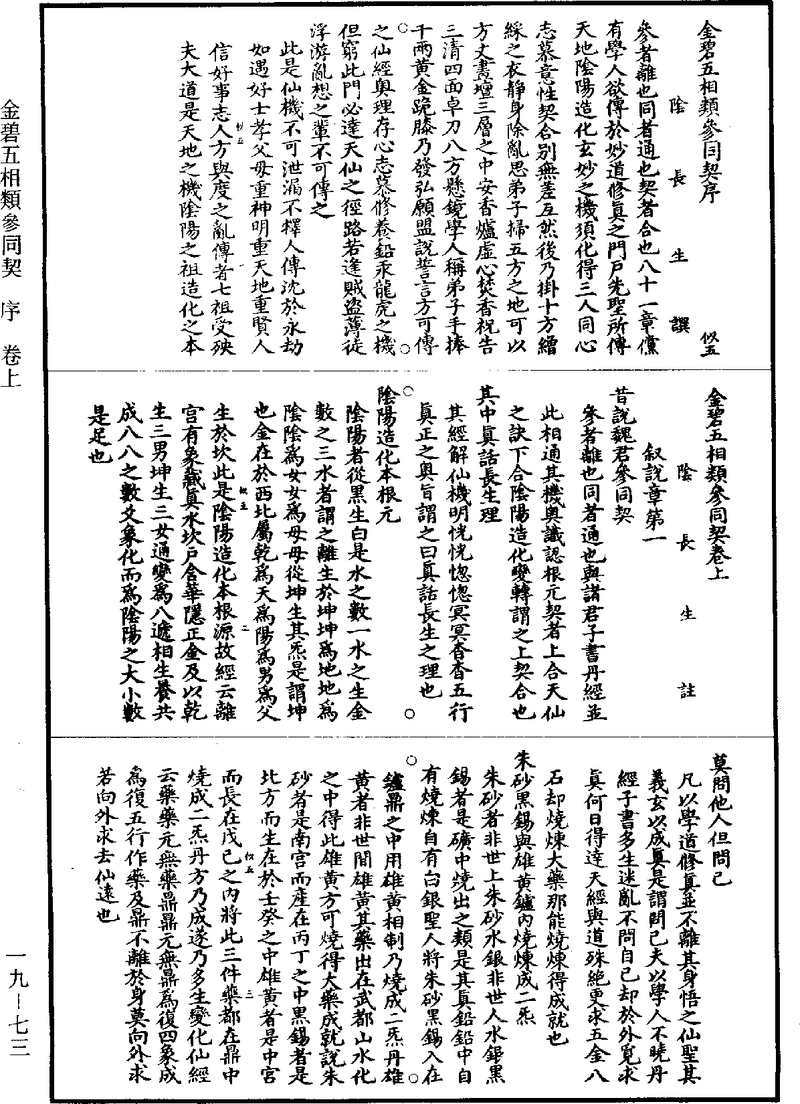 金碧五相類參同契序
陰長生譔 似五
參者離也同者通也契者合也八十一章儻
有學人欲傳於妙道修真之門戶先聖所傳
天地陰陽造化玄妙之機須化得三人同心
志慕意性契合別無差互然後乃掛十方繒
綵之衣靜身除亂思弟子掃五方之地可以
方丈畫壇三層之中安香爐虛心焚香祝告
三清四面卓刀八方懸鏡學人稱弟子手捧
千兩黃金跪膝乃發弘願盟說誓言方可傳
之仙經奧理存心志慕修養鉛汞龍虎之機
但窮此門必達天仙之徑路若逢賊盜薄徒
浮游亂想之輩不可傳之
此是仙機不可泄漏不擇人傳沈於永劫
如遇好士孝父母重神明重天地重賢人
信好事志人方與度之亂傳者七祖受殃
夫大道是天地之機陰陽之祖造化之本
金碧五相類參同契卷上
陰長生註
叙說章第一
昔說魏君參同契
參者離也同者通也與諸君子書丹經並
此相通其機奧識認根元契者上合天仙
之訣下合陰陽造化變轉謂之上契合也
其中真話長生理
其經解仙機明恍恍惚惚冥冥杳杳五行
真正之奧旨謂之曰真話長生之理也
陰陽造化本根元
陰陽者從黑生白是水之數一水之生金
數之三水者謂之離生於坤坤為地地為
陰陰為女女為母母從坤生其炁是謂坤
也金在於西北屬乾為天為陽為男為父
生於坎此是陰陽造化本根源故經云離
宮有象藏真水坎戶含華隱正金及以乾
生三男坤生三女通變為八遞相生養共
成八八之數爻象化而為陰陽之大小數
是足也
莫問他人但問己
凡以學道修真並不離其身悟之仙聖其
義玄以成真是謂問己夫以學人不曉丹
經子書多生迷亂不問自己却於外覓求
真何日得達天經與道殊絕更求五金八
石却燒煉大藥那能燒煉得成就也
朱砂黑錫與雄黃鑪內燒煉成二炁
朱砂者非世上朱砂水銀非世人水銀黑
錫者是礦中燒出之類是其真鉛鉛中自
有燒煉自有白銀聖人將朱砂黑錫入在
鑪鼎之中用雄黃相制乃燒成二炁丹雄
黃者非世間雄黃其藥出在武都山水化
之中得此雄黃方可燒得大藥成就說朱
砂者是南宮而產在丙丁之中黑錫者是
北方而生在於壬癸之中雄黃者是中宮
而長在戊己之內將此三件藥都在鼎中
燒成二炁丹方乃成遂乃多生變化仙經
云藥藥元無藥鼎鼎元無鼎為復四象成
為復五行作藥及鼎不離於身莫向外求
若向外求去仙遠也
金碧五相類參同契 序 卷上
一九－七三